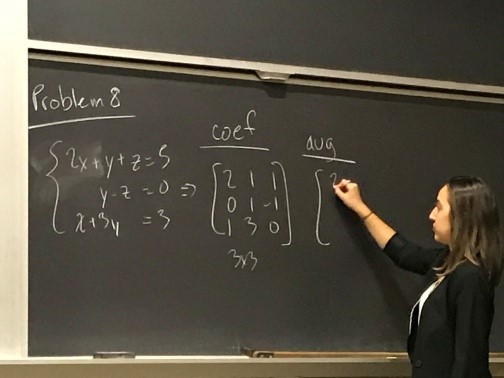 Problem 8
coef
aug
2x+y+z=5
y-z=0
x+3y =3
⇒
2 1 1
0 1 -1
1 3 0
3x3
2